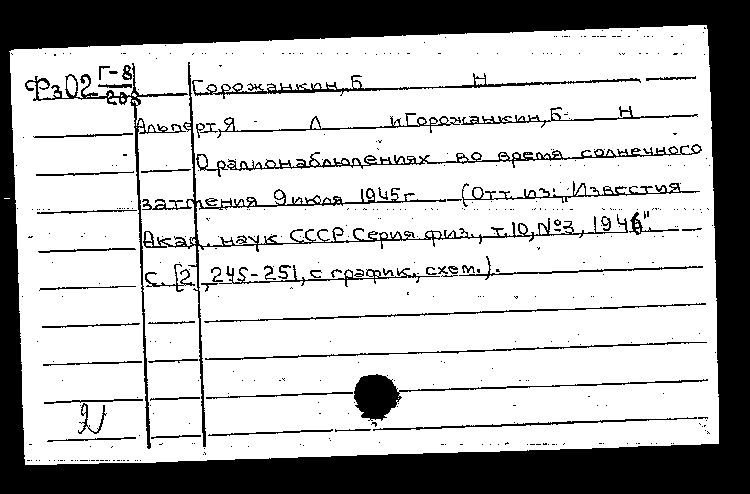 Фз02 Г-8/203 Горожанкин, Б Н
Альперт, Я Л и Горожанкин, Б. Н
О радионаблюдениях во время солнечного
затмения 9 июля 1945 г (Отт. из: „Известия
Акад. наук СССР. Серия физ., т. 10, №3, 1946".
С. [2], 245-251, с график., схем.).